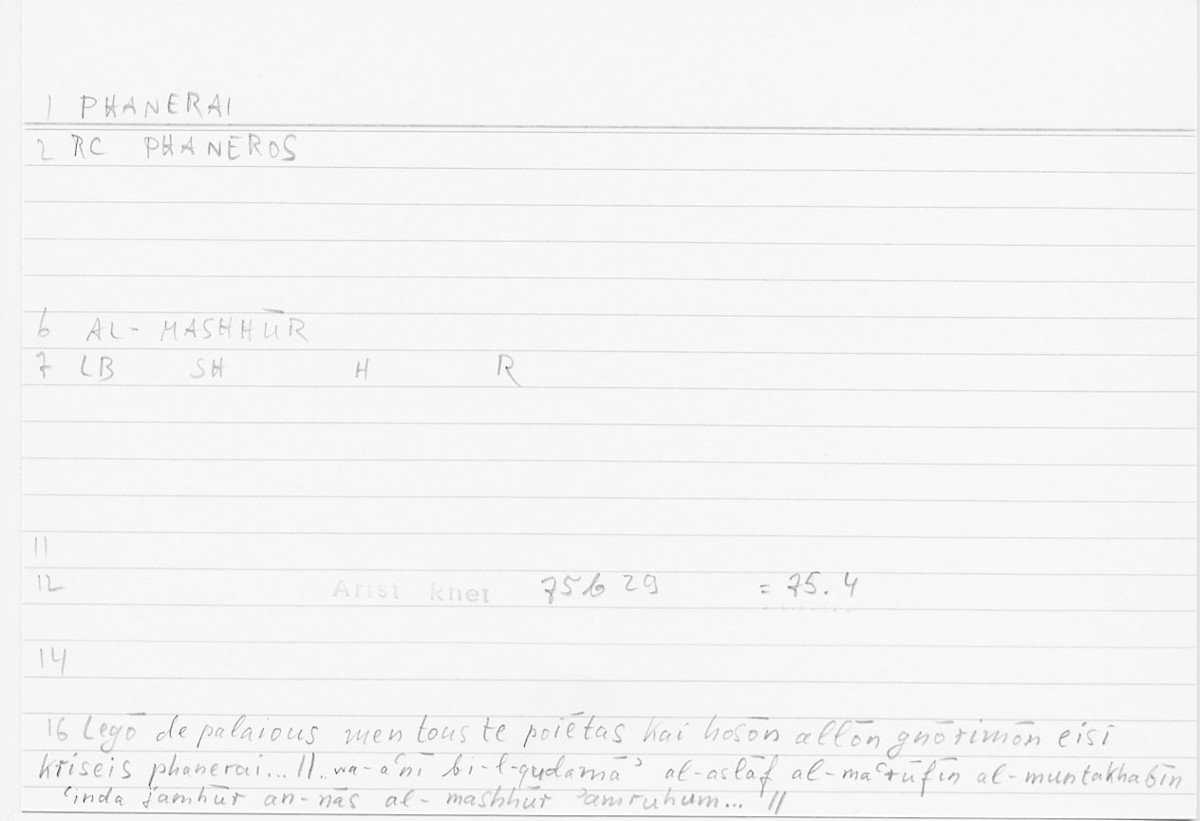 1 PHANERAI
2 RC PHANEROS
6 AL-MASHHŪR
7 LB SH H R
11
12 Arist rhet 75b29 = 75.4
14
16 Legō de palaious men tous te poiētas kai hosōn allōn gnōrimōn eisi
kriseis phanerai... // wa-aʿnī bi-l-qudamāʾ al-aslāf al-maʿrūfīn al-muntakhabīn
ʿinda jamhūr an-nās al-mashhūr ʾamruhum... //